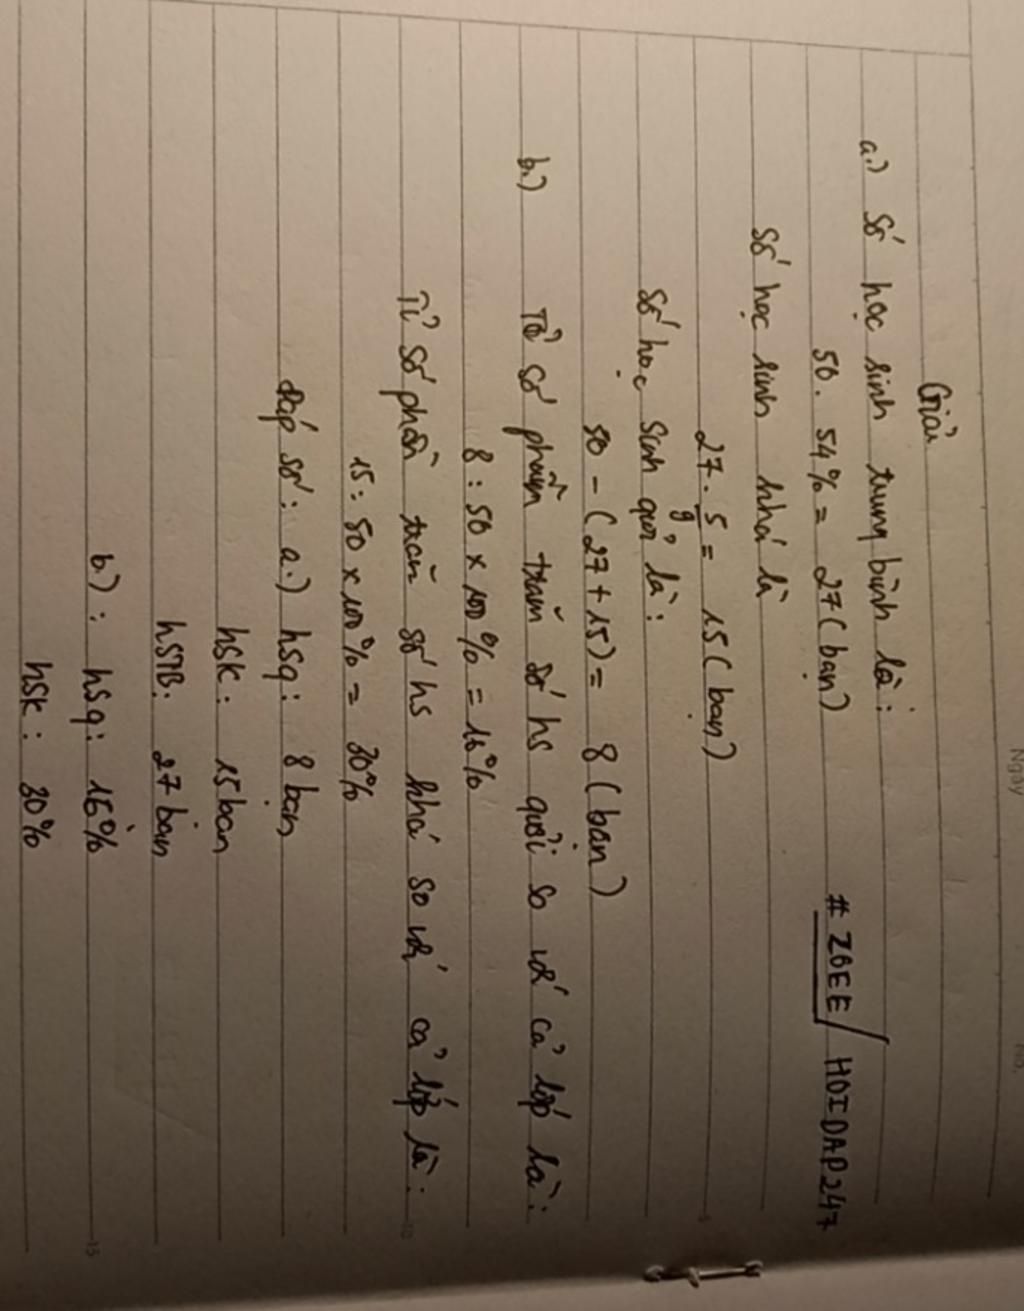 Giải
a.) Số học sinh trung bình là:
50. 54% = 27 (bạn)
# ZOEE / HOIDAP247
Số học sinh khá là
27. 5/9 = 15 (bạn)
Số học sinh giỏi là:
50 - (27 + 15) = 8 (bạn)
b.) Tỉ số phần trăm số hs giỏi so với cả lớp là:
8 : 50 x 100% = 16%
Tỉ số phần trăm số hs khá so với cả lớp là:
15 : 50 x 100% = 30%
Đáp số: a.) hsg: 8 bạn
hsk: 15 bạn
hsTB: 27 bạn
b.): hsg: 16%
hsk: 30%
Ngày
No.
5
10
15